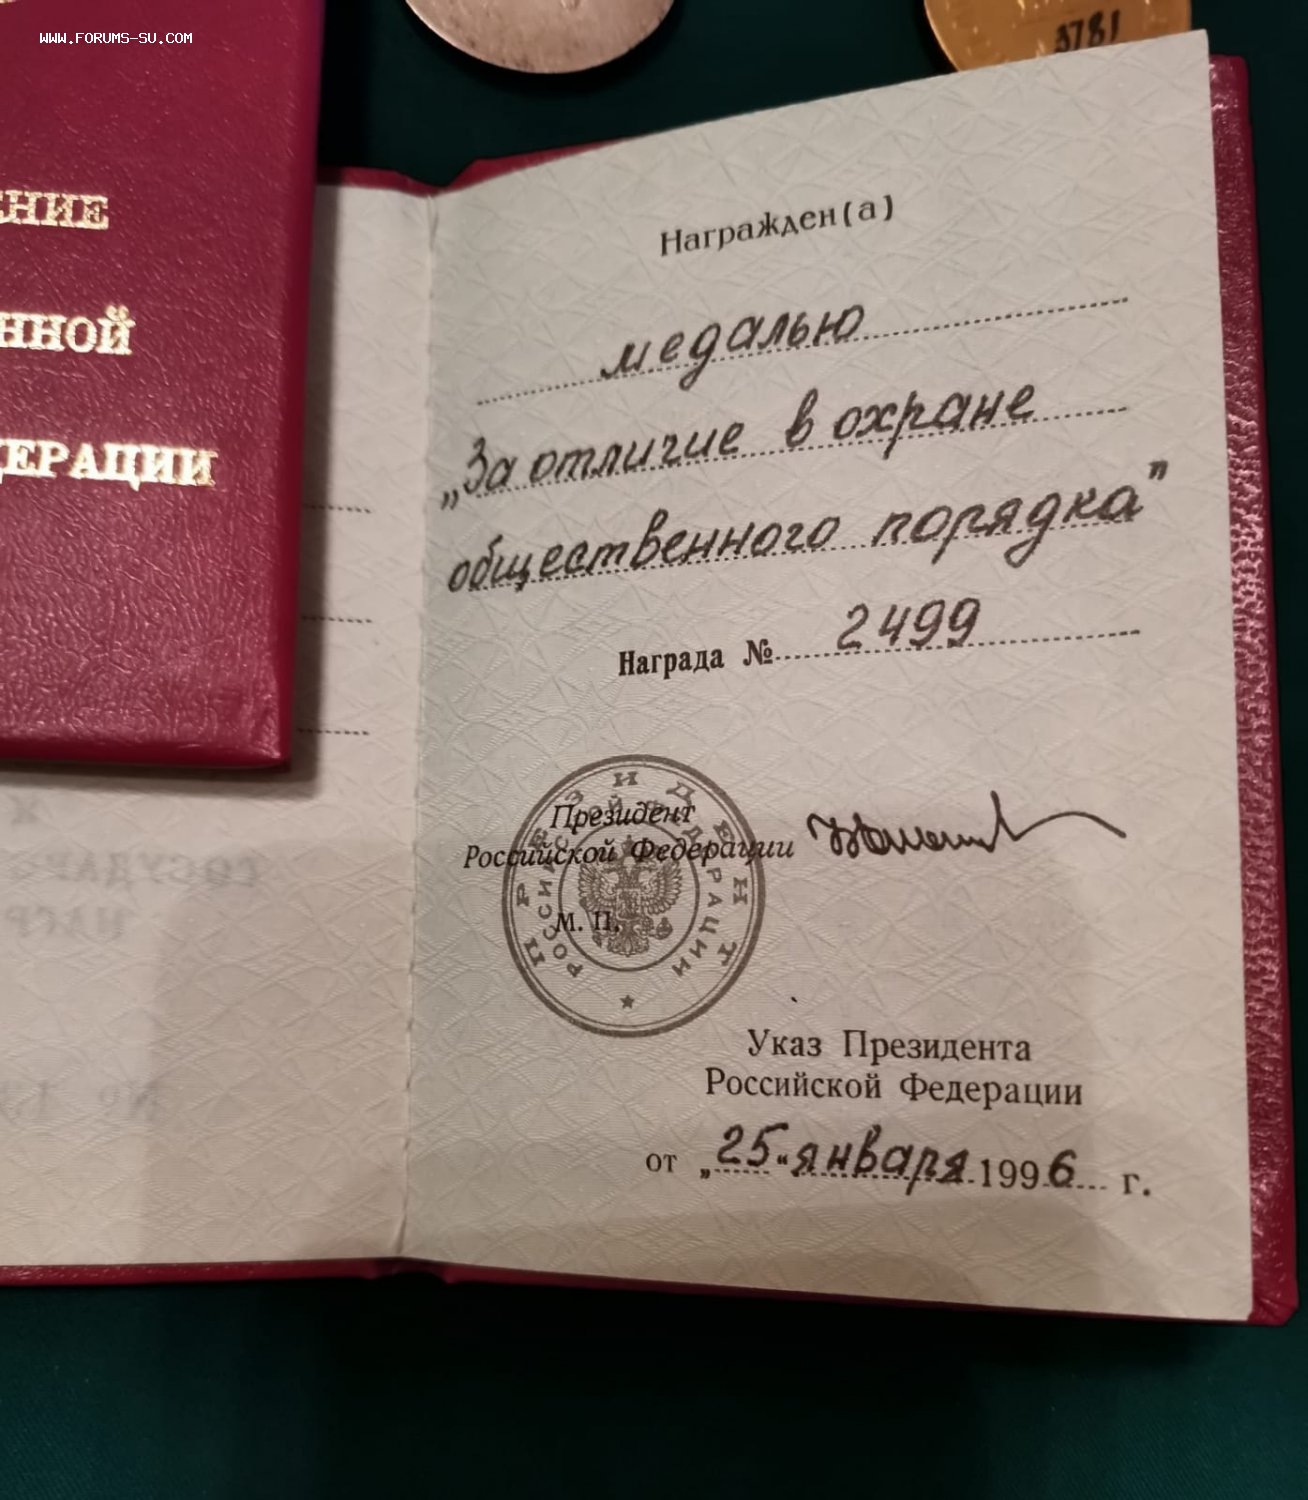 WWW.FORUMS-SU.COM
3781
ЕНИЕ
ННОЙ
ДЕРАЦИИ
Награжден(а)
медалью
„За отличие в охране
общественного порядка"
Награда № 2499
ПРЕЗИДЕНТ
РОССИЙСКОЙ ФЕДЕРАЦИИ
Президент
Российской Федерации
М. П.
Указ Президента
Российской Федерации
от „25“ января 1996 г.